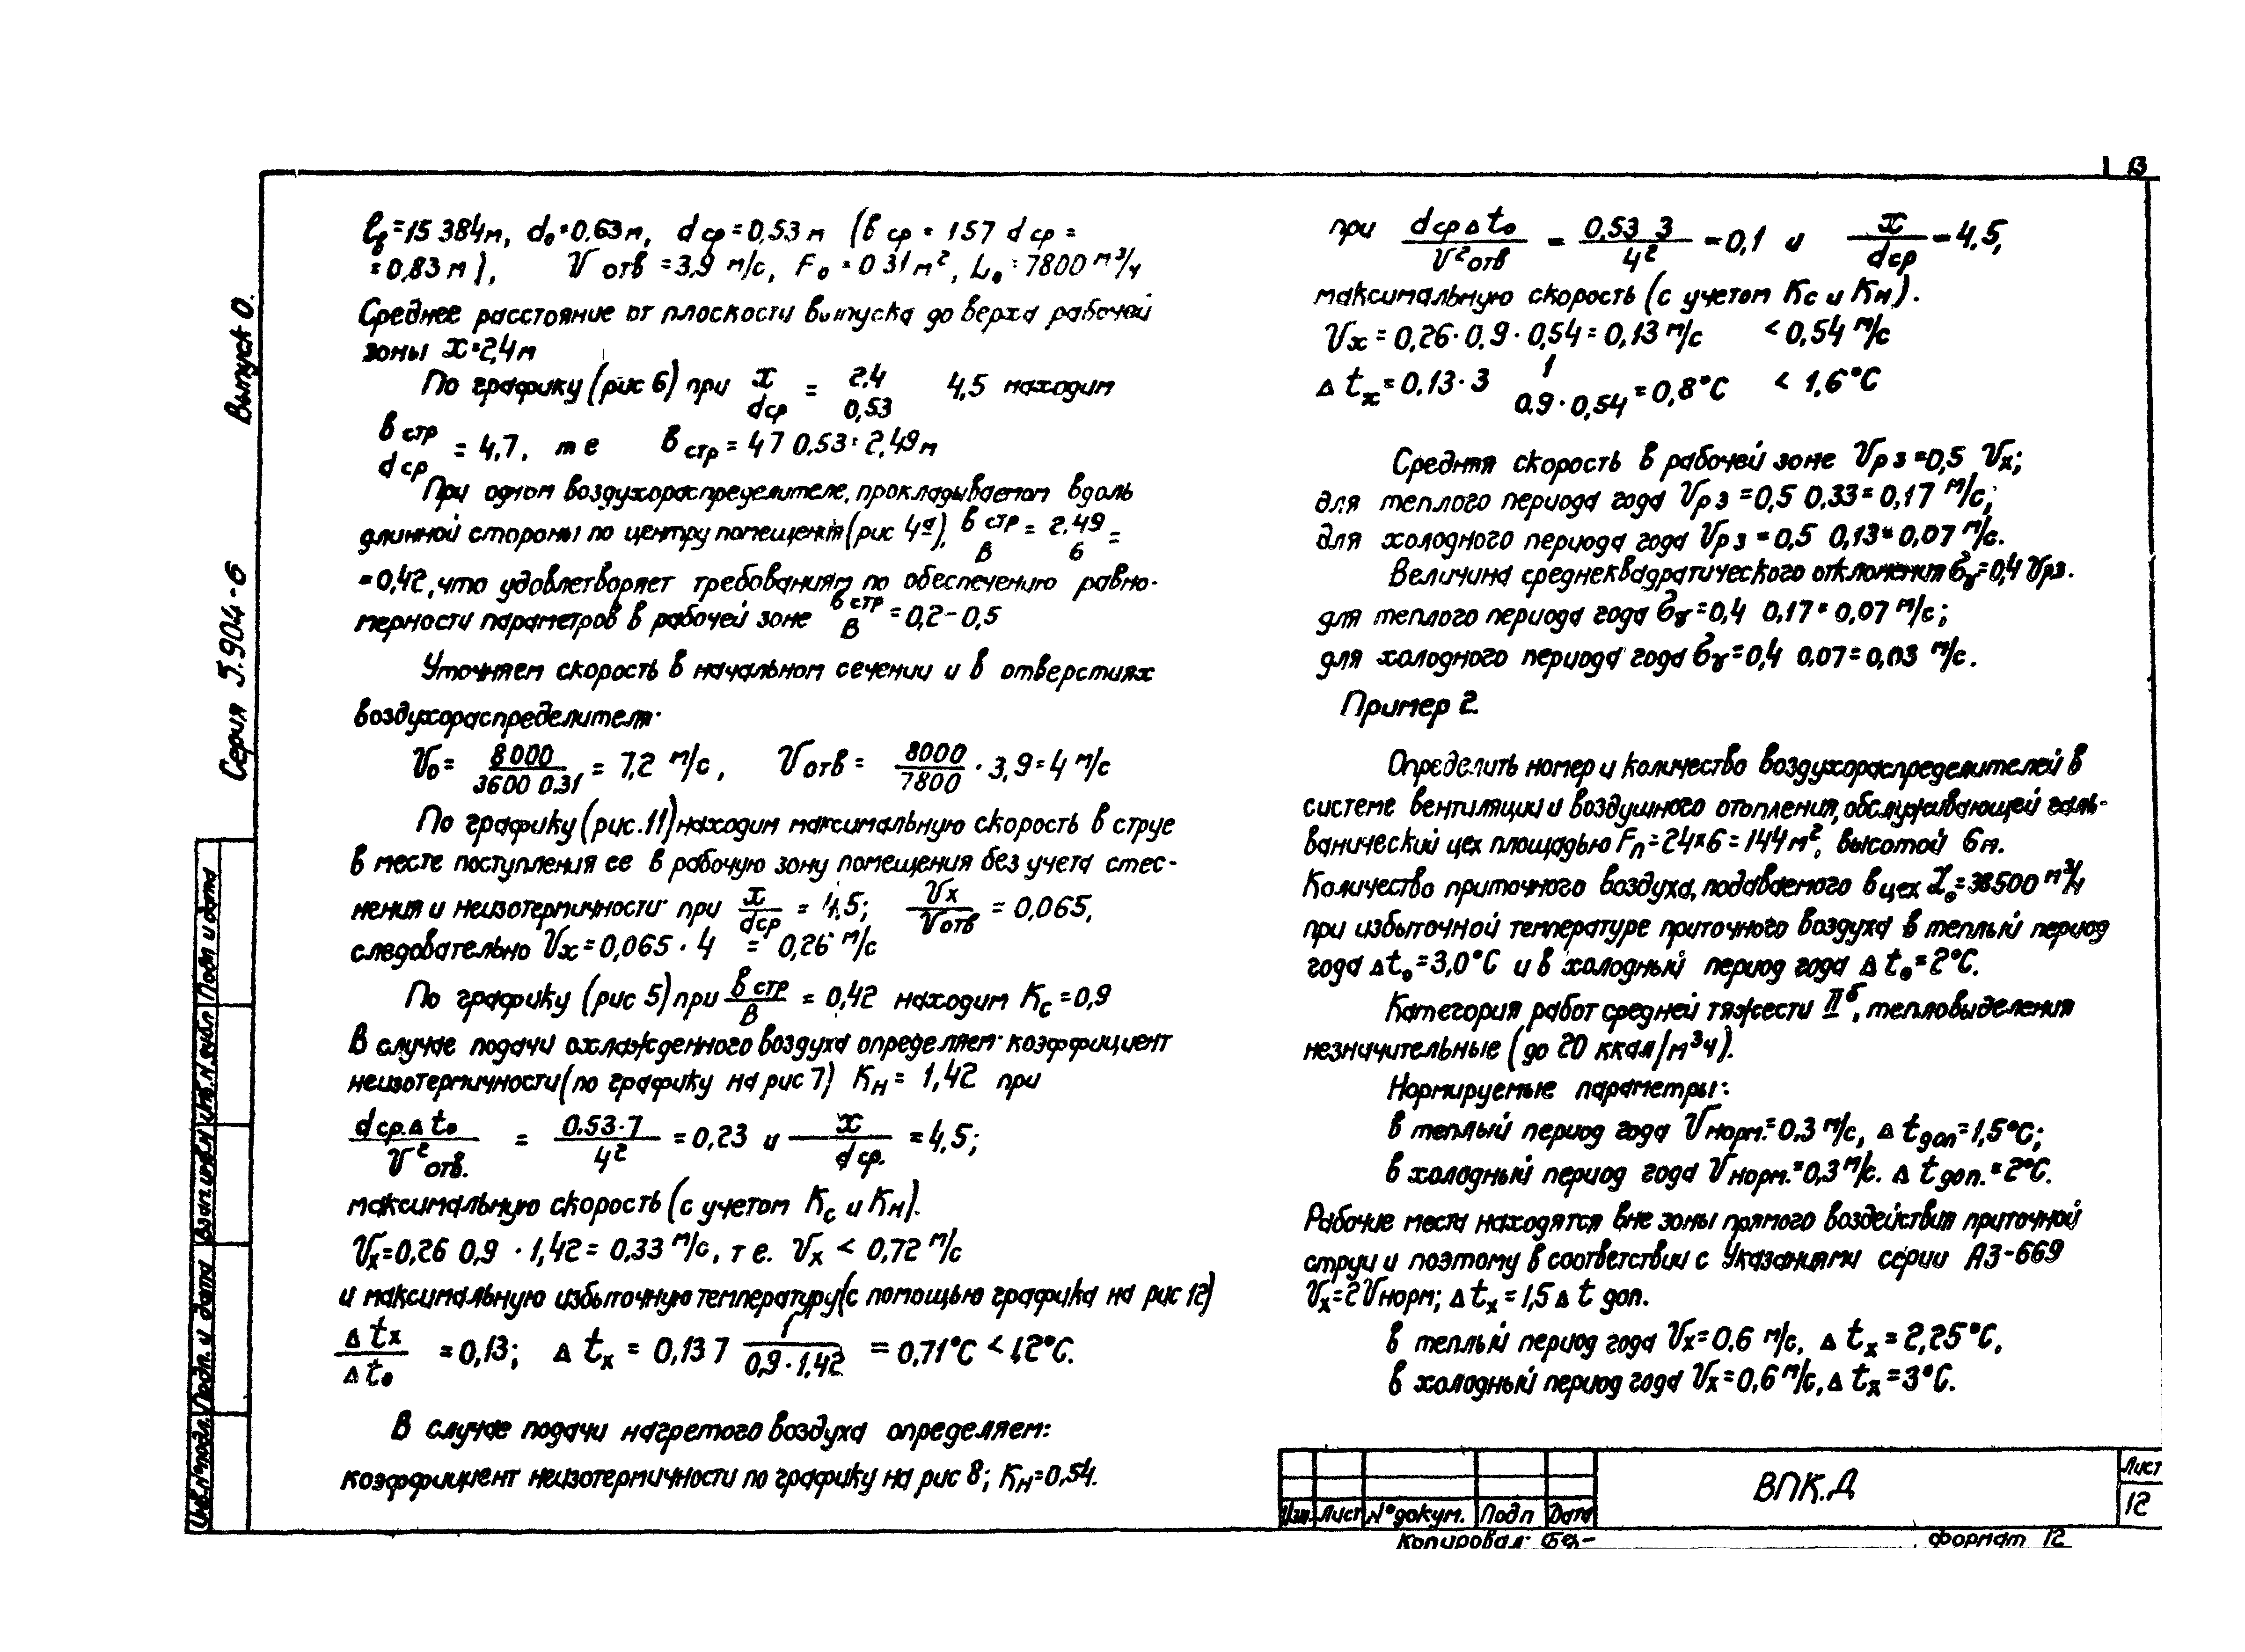 13
ℓв=15 384м, d₀=0.63м, dср=0,53м (вср = 157 dср =
=0,83м), Vотв=3,9 м/с, F₀=0 31м², L₀=7800 м³/ч
Среднее расстояние от плоскости выпуска до верха рабочей
зоны x=2,4м
По графику (рис 6) при x/dср = 2.4/0,53 4,5 находим
встр/dср = 4,7, т е встр = 4 7 0.53=2,49м
При одном воздухораспределителе, прокладываемом вдоль
длинной стороны по центру помещения (рис 4а), встр/В = 2.49/6 =
=0,42, что удовлетворяет требованиям по обеспечению равно-
мерности параметров в рабочей зоне встр/В = 0,2-0,5
Уточняем скорость в начальном сечении и в отверстиях
воздухораспределителя·
V₀= 8000/3600 0.31 = 7,2 м/с, Vотв= 8000/7800 · 3,9=4 м/с
По графику (рис.11) находим максимальную скорость в струе
в месте поступления ее в рабочую зону помещения без учета стес-
нения и неизотермичности· при x/dср = 4,5; Vx/Vотв = 0,065,
следовательно Vx=0,065 · 4 = 0,26 м/с
По графику (рис 5) при встр/В = 0,42 находим Кс=0,9
В случае подачи охлажденного воздуха определяем· коэффициент
неизотермичности (по графику на рис 7) Кн= 1,42 при
dср.Δt₀/V²отв. = 0.53·7/4² =0,23 и x/dср. =4,5;
максимальную скорость (с учетом Кс и Кн).
Vx=0,26 0,9 · 1,42= 0,33 м/с, т е. Vx < 0,72 м/с
и максимальную избыточную температуру (с помощью графика на рис 12)
Δtx/Δt₀ =0,13; Δtx = 0,13 7 1/0,9·1,42 = 0,71°С < 1,2°С.
В случае подачи нагретого воздуха определяем:
коэффициент неизотермичности по графику на рис 8; Кн=0,54.
при dсрΔt₀/V²отв = 0,53 3/4² =0,1 и x/dср =4,5,
максимальную скорость (с учетом Кс и Кн).
Vx = 0,26· 0,9 · 0,54= 0,13 м/с < 0,54 м/с
Δtx=0.13·3 1/0.9·0,54 =0,8°С < 1,6°С
Средняя скорость в рабочей зоне Vр з=0,5 Vx;
для теплого периода года Vр з =0,5 0,33= 0,17 м/с;
для холодного периода года Vр з =0,5 0,13=0,07 м/с.
Величина среднеквадратического отклонения бγ=0,4 Vрз.
для теплого периода года бγ=0,4 0,17=0,07 м/с;
для холодного периода года бγ=0,4 0,07=0,03 м/с.
Пример 2.
Определить номер и количество воздухораспределителей в
системе вентиляции и воздушного отопления, обслуживающей галь-
ванический цех площадью Fп=24×6=144м², высотой 6м.
Количество приточного воздуха, подаваемого в цех L₀=38500 м³/ч
при избыточной температуре приточного воздуха в теплый период
года Δt₀=3,0°С и в холодный период года Δt₀=2°С.
Категория работ средней тяжести IIб, тепловыделения
незначительные (до 20 ккал/м³ч).
Нормируемые параметры:
в теплый период года Vнорм.=0.3 м/с, Δtдоп=1,5°С;
в холодный период года Vнорм.=0,3 м/с. Δtдоп.=2°С.
Рабочие места находятся вне зоны прямого воздействия приточной
струи и поэтому в соответствии с Указаниями серии А3-669
Vx=2Vнорм; Δtx=1,5Δt доп.
в теплый период года Vx=0.6 м/с, Δtx=2,25°С,
в холодный период года Vx=0,6м/с, Δtx=3°С.
Серия 5.904-6 Выпуск 0.
Инв.№подл. Подп. и дата Взап.инв.№ Инв.№дубл Подп и дата
Изм. Лист №докум. Подп Дата
ВПК.Д
Лист
12
Копировал:
формат 12